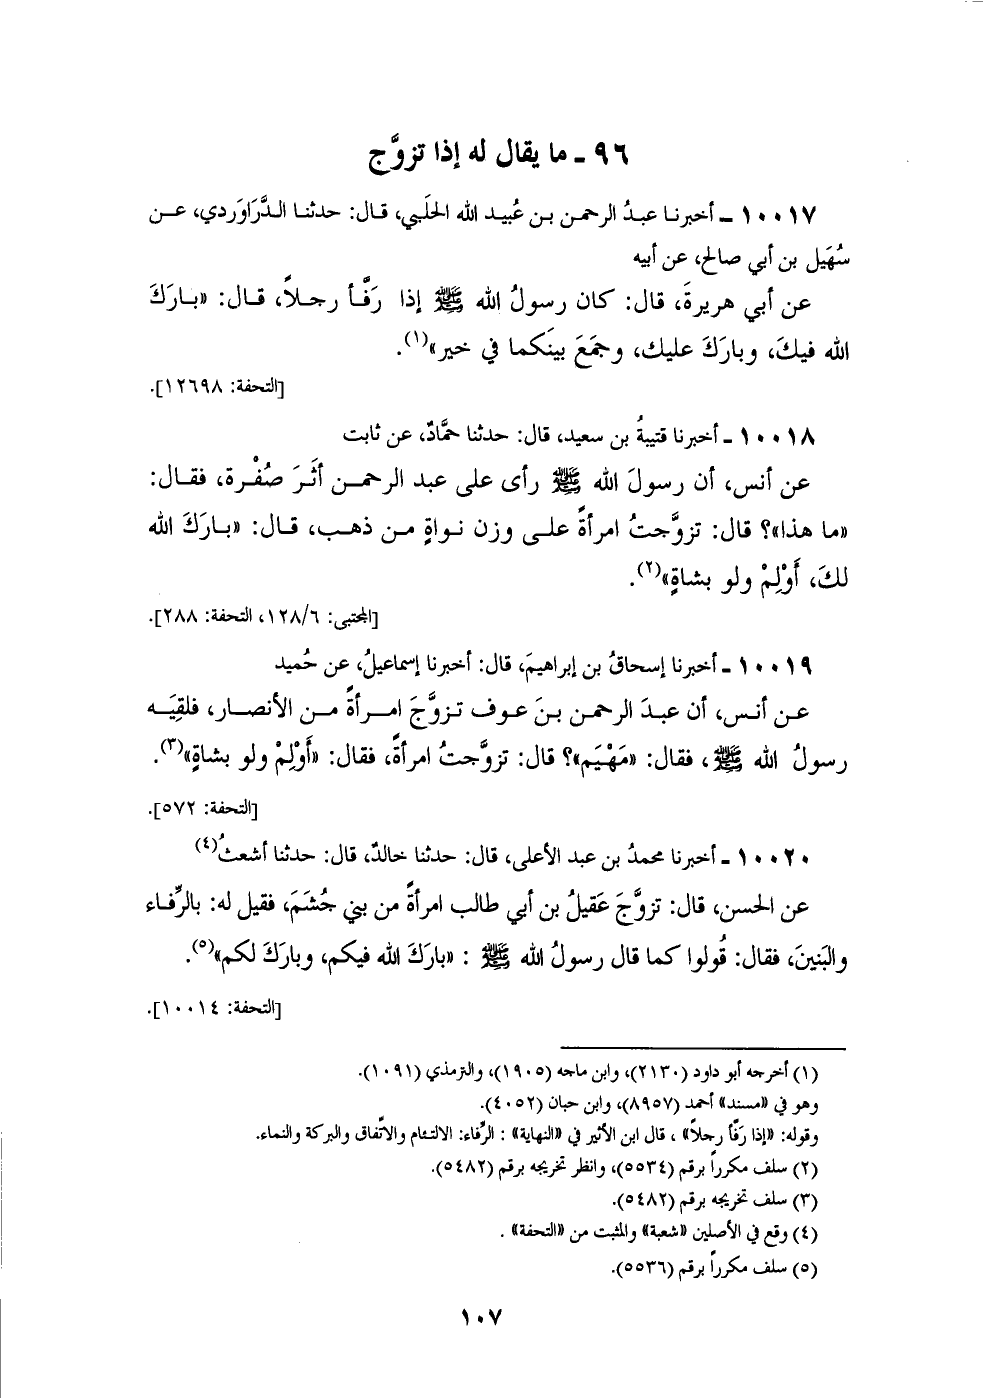 ٩٦ ـ ما يقال له إذا تزوَّج
١٠٠١٧ ـ أخبرنا عبدُ الرحمن بن عُبيد الله الحلَبي، قال: حدثنا الدَّرَاوَردي، عن
سُهَيل بن أبي صالح، عن أبيه
عن أبي هريرةَ، قال: كان رسولُ الله ﷺ إذا رَفَّأ رجلاً، قال: «بارَكَ
الله فيكَ، وبارَكَ عليك، وجمَعَ بينَكما في خير»(١).
[التحفة: ١٢٦٩٨].
١٠٠١٨ ـ أخبرنا قتيبةُ بن سعيد، قال: حدثنا حمَّادٌ، عن ثابت
عن أنس، أن رسولَ الله ﷺ رأى على عبد الرحمن أثَرَ صُفْرة، فقال:
«ما هذا»؟ قال: تزوَّجتُ امرأةً على وزن نواةٍ من ذهب، قال: «بارَكَ الله
لكَ، أَوْلِمْ ولو بشاةٍ»(٢).
[المجتبى: ١٢٨/٦، التحفة: ٢٨٨].
١٠٠١٩ ـ أخبرنا إسحاقُ بن إبراهيمَ، قال: أخبرنا إسماعيلُ، عن حُميد
عن أنس، أن عبدَ الرحمن بنَ عوف تزوَّجَ امرأةً من الأنصار، فلقِيَه
رسولُ الله ﷺ، فقال: «مَهْيَم»؟ قال: تزوَّجتُ امرأةً، فقال: «أَوْلِمْ ولو بشاةٍ»(٣).
[التحفة: ٥٧٢].
١٠٠٢٠ ـ أخبرنا محمدُ بن عبد الأعلى، قال: حدثنا خالدٌ، قال: حدثنا أشعثُ(٤)
عن الحسن، قال: تزوَّجَ عَقيلُ بن أبي طالب امرأةً من بني جُشَمَ، فقيل له: بالرِّفاء
والبَنينَ، فقال: قُولوا كما قال رسولُ الله ﷺ : «بارَكَ الله فيكم، وبارَكَ لكم»(٥).
[التحفة: ١٠٠١٤].
(١) أخرجه أبو داود (٢١٣٠)، وابن ماجه (١٩٠٥)، والترمذي (١٠٩١).
وهو في «مسند» أحمد (٨٩٥٧)، وابن حبان (٤٠٥٢).
وقوله: «إذا رَفَّأ رجلاً» ، قال ابن الأثير في «النهاية» : الرِّفاء: الالتئام والاتِّفاق والبركة والنماء.
(٢) سلف مكرراً برقم (٥٥٣٤)، وانظر تخريجه برقم (٥٤٨٢).
(٣) سلف تخريجه برقم (٥٤٨٢).
(٤) وقع في الأصلين «شعبة» والمثبت من «التحفة» .
(٥) سلف مكرراً برقم (٥٥٣٦).
١٠٧